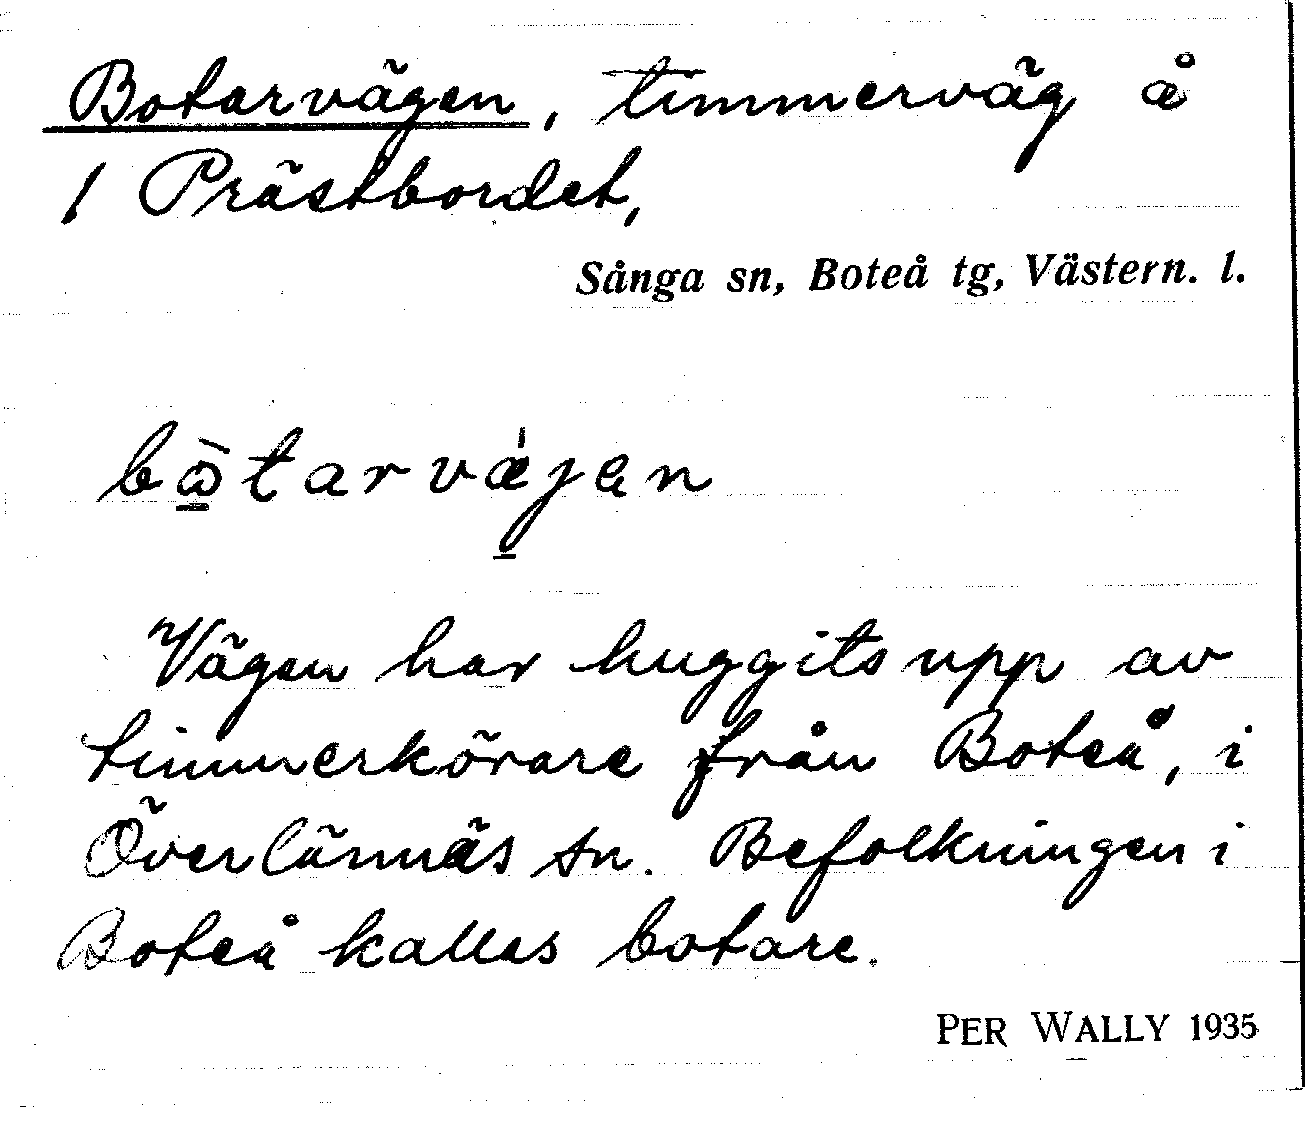 Botarvägen, timmerväg å
1 Prästbordet,
Sånga sn, Boteå tg, Västern. l.
bὼtarvæ̍jen
Vägen har huggits upp av
timmerkörare från Boteå, i
Överlännäs sn. Befolkningen i
Boteå kallas botare.
PER WALLY 1935